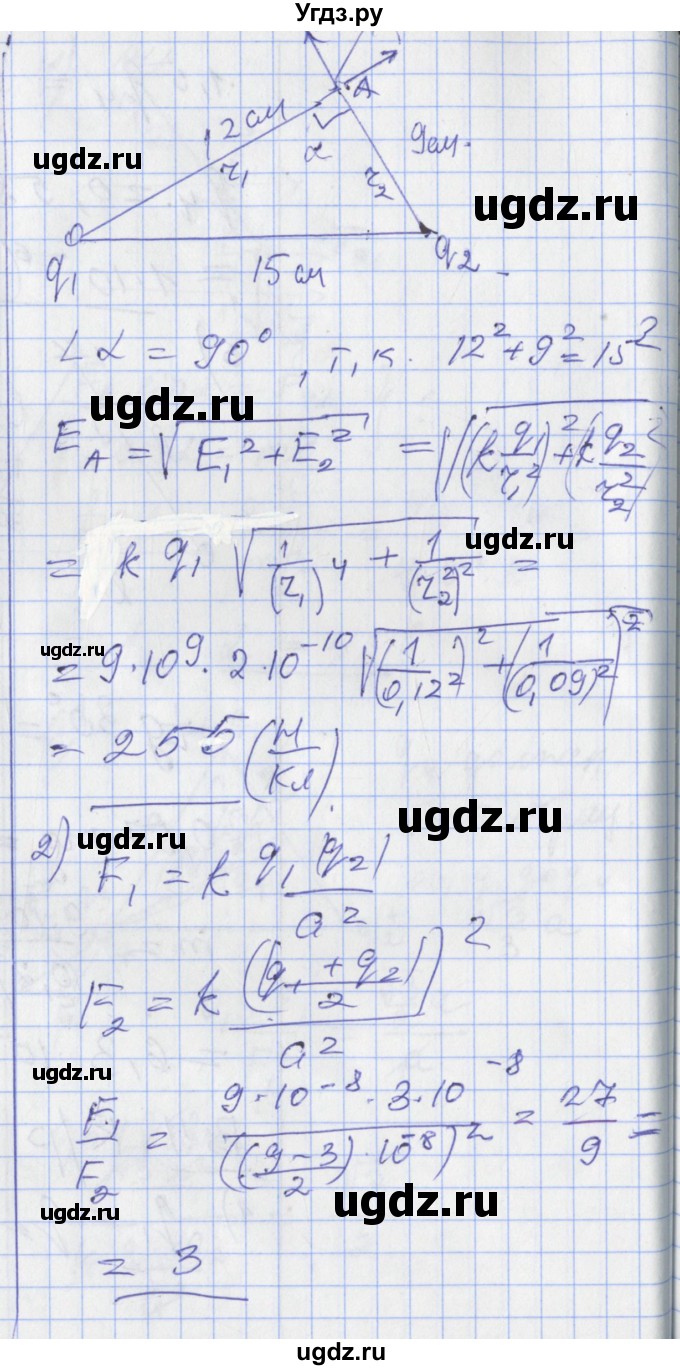 Угдз.ру
A
12 см
9 см.
ugdz.ru
r₁
α
r₂
ugdz.ru
q₁
15 см
q₂
∠α = 90°, т.к. 12² + 9² = 15²
ugdz.ru
E_A = √(E₁² + E₂²) = √((k q₁/r₁²)² + (k q₂/r₂²)²)
ugdz.ru
= k q₁ √(1/(r₁)⁴ + 1/(r₂²)²) =
ugdz.ru
= 9·10⁹·2·10⁻¹⁰ √((1/0,12²)² + (1/0,09)²)²
= 255 (Н/Кл).
ugdz.ru
ugdz.ru
2) F₁ = k q₁|q₂|/a²
F₂ = k ((q₁ + q₂)/2)²/a²
ugdz.ru
F₁/F₂ = 9·10⁻⁸·3·10⁻⁸/((9-3)/2·10⁻⁸)² = 27/9 =
ugdz.ru
ugdz.ru
= 3
ugdz.ru